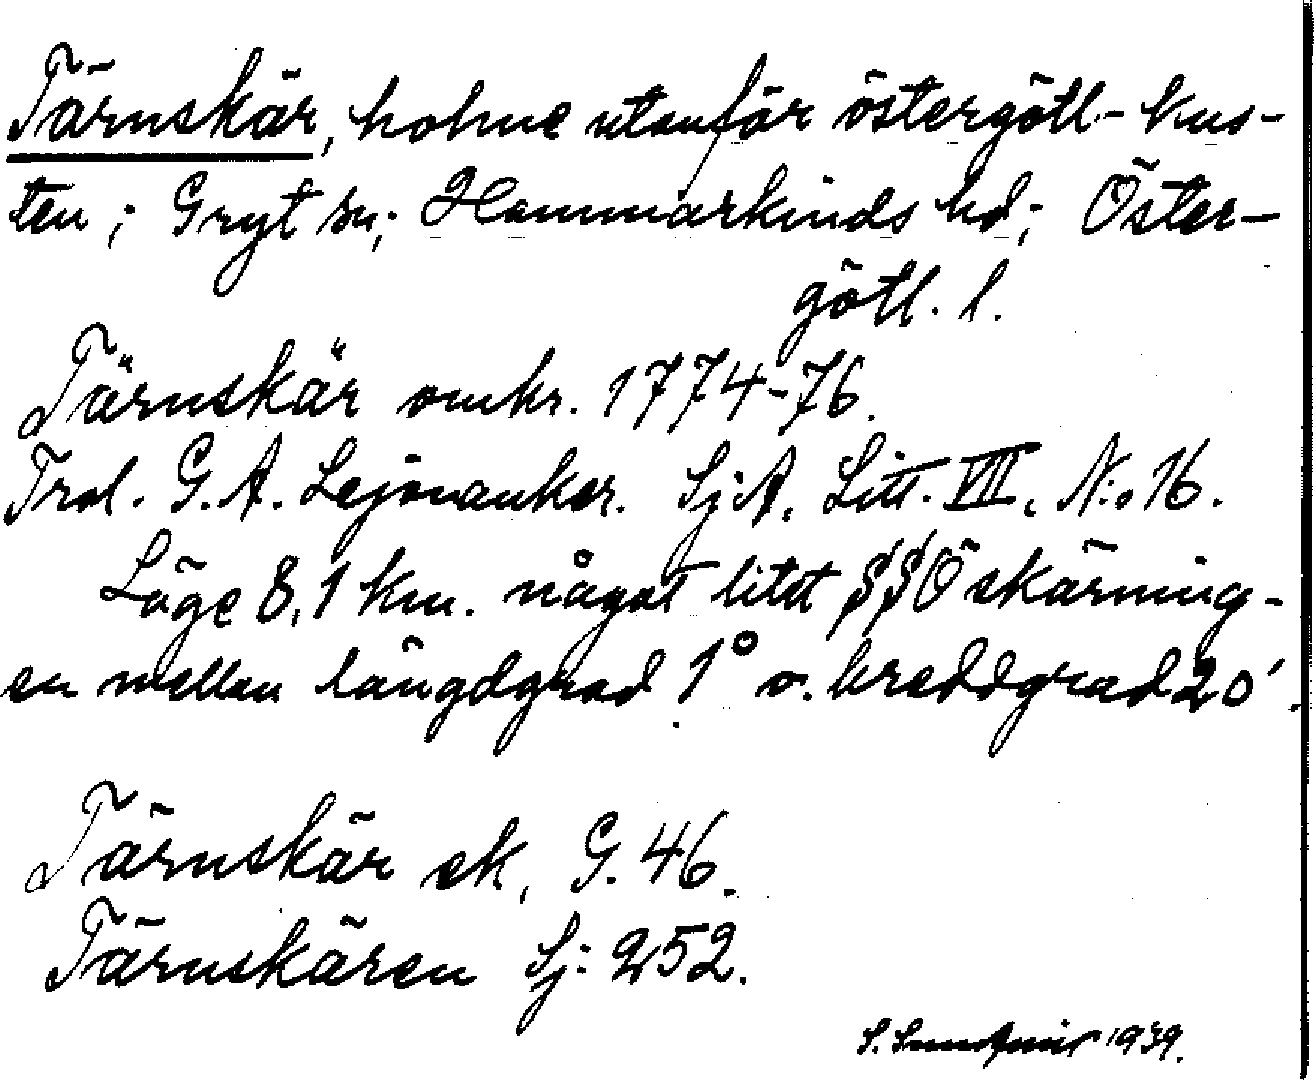 Tärnskär, holme utanför östergötl- kus-
ten; Gryt sn; Hammarkinds hd; Öster-
götl. l.
Tärnskär omkr. 1774-76.
Trol. G. A. Lejonanker. SjA. Litt. VII. N:o 16.
Läge 8,1 km. något litet SSÖ skärning-
en mellan längdgrad 1° o. breddgrad 20'.
Tärnskär ek. G. 46.
Tärnskären Sj: 252.
S. 1939.